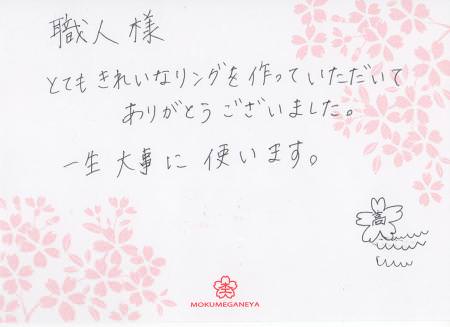 職人様
とてもきれいなリングを作っていただいて
ありがとうございました。
一生大事に使います。
高
MOKUMEGANEYA